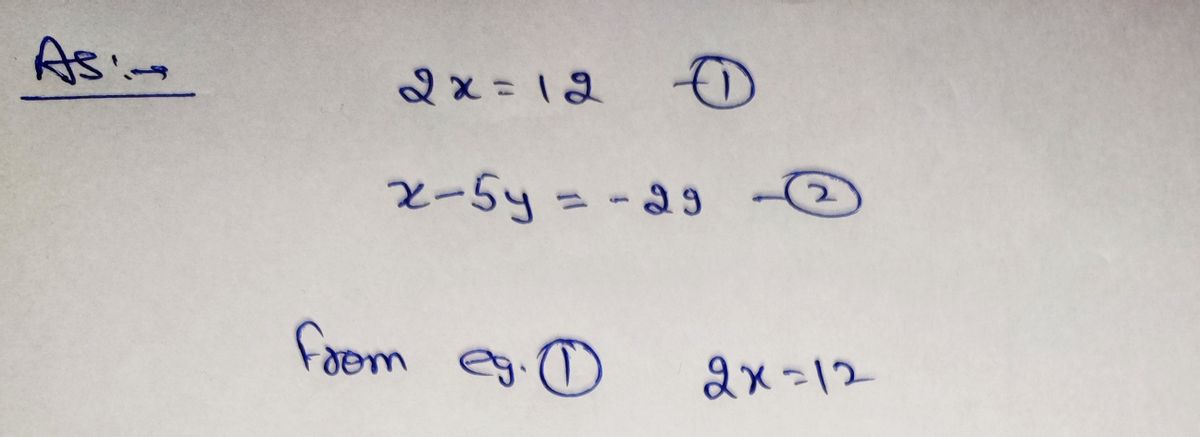 As:→ 2x=12 -①
x-5y = -29 -②
from eq. ① 2x=12